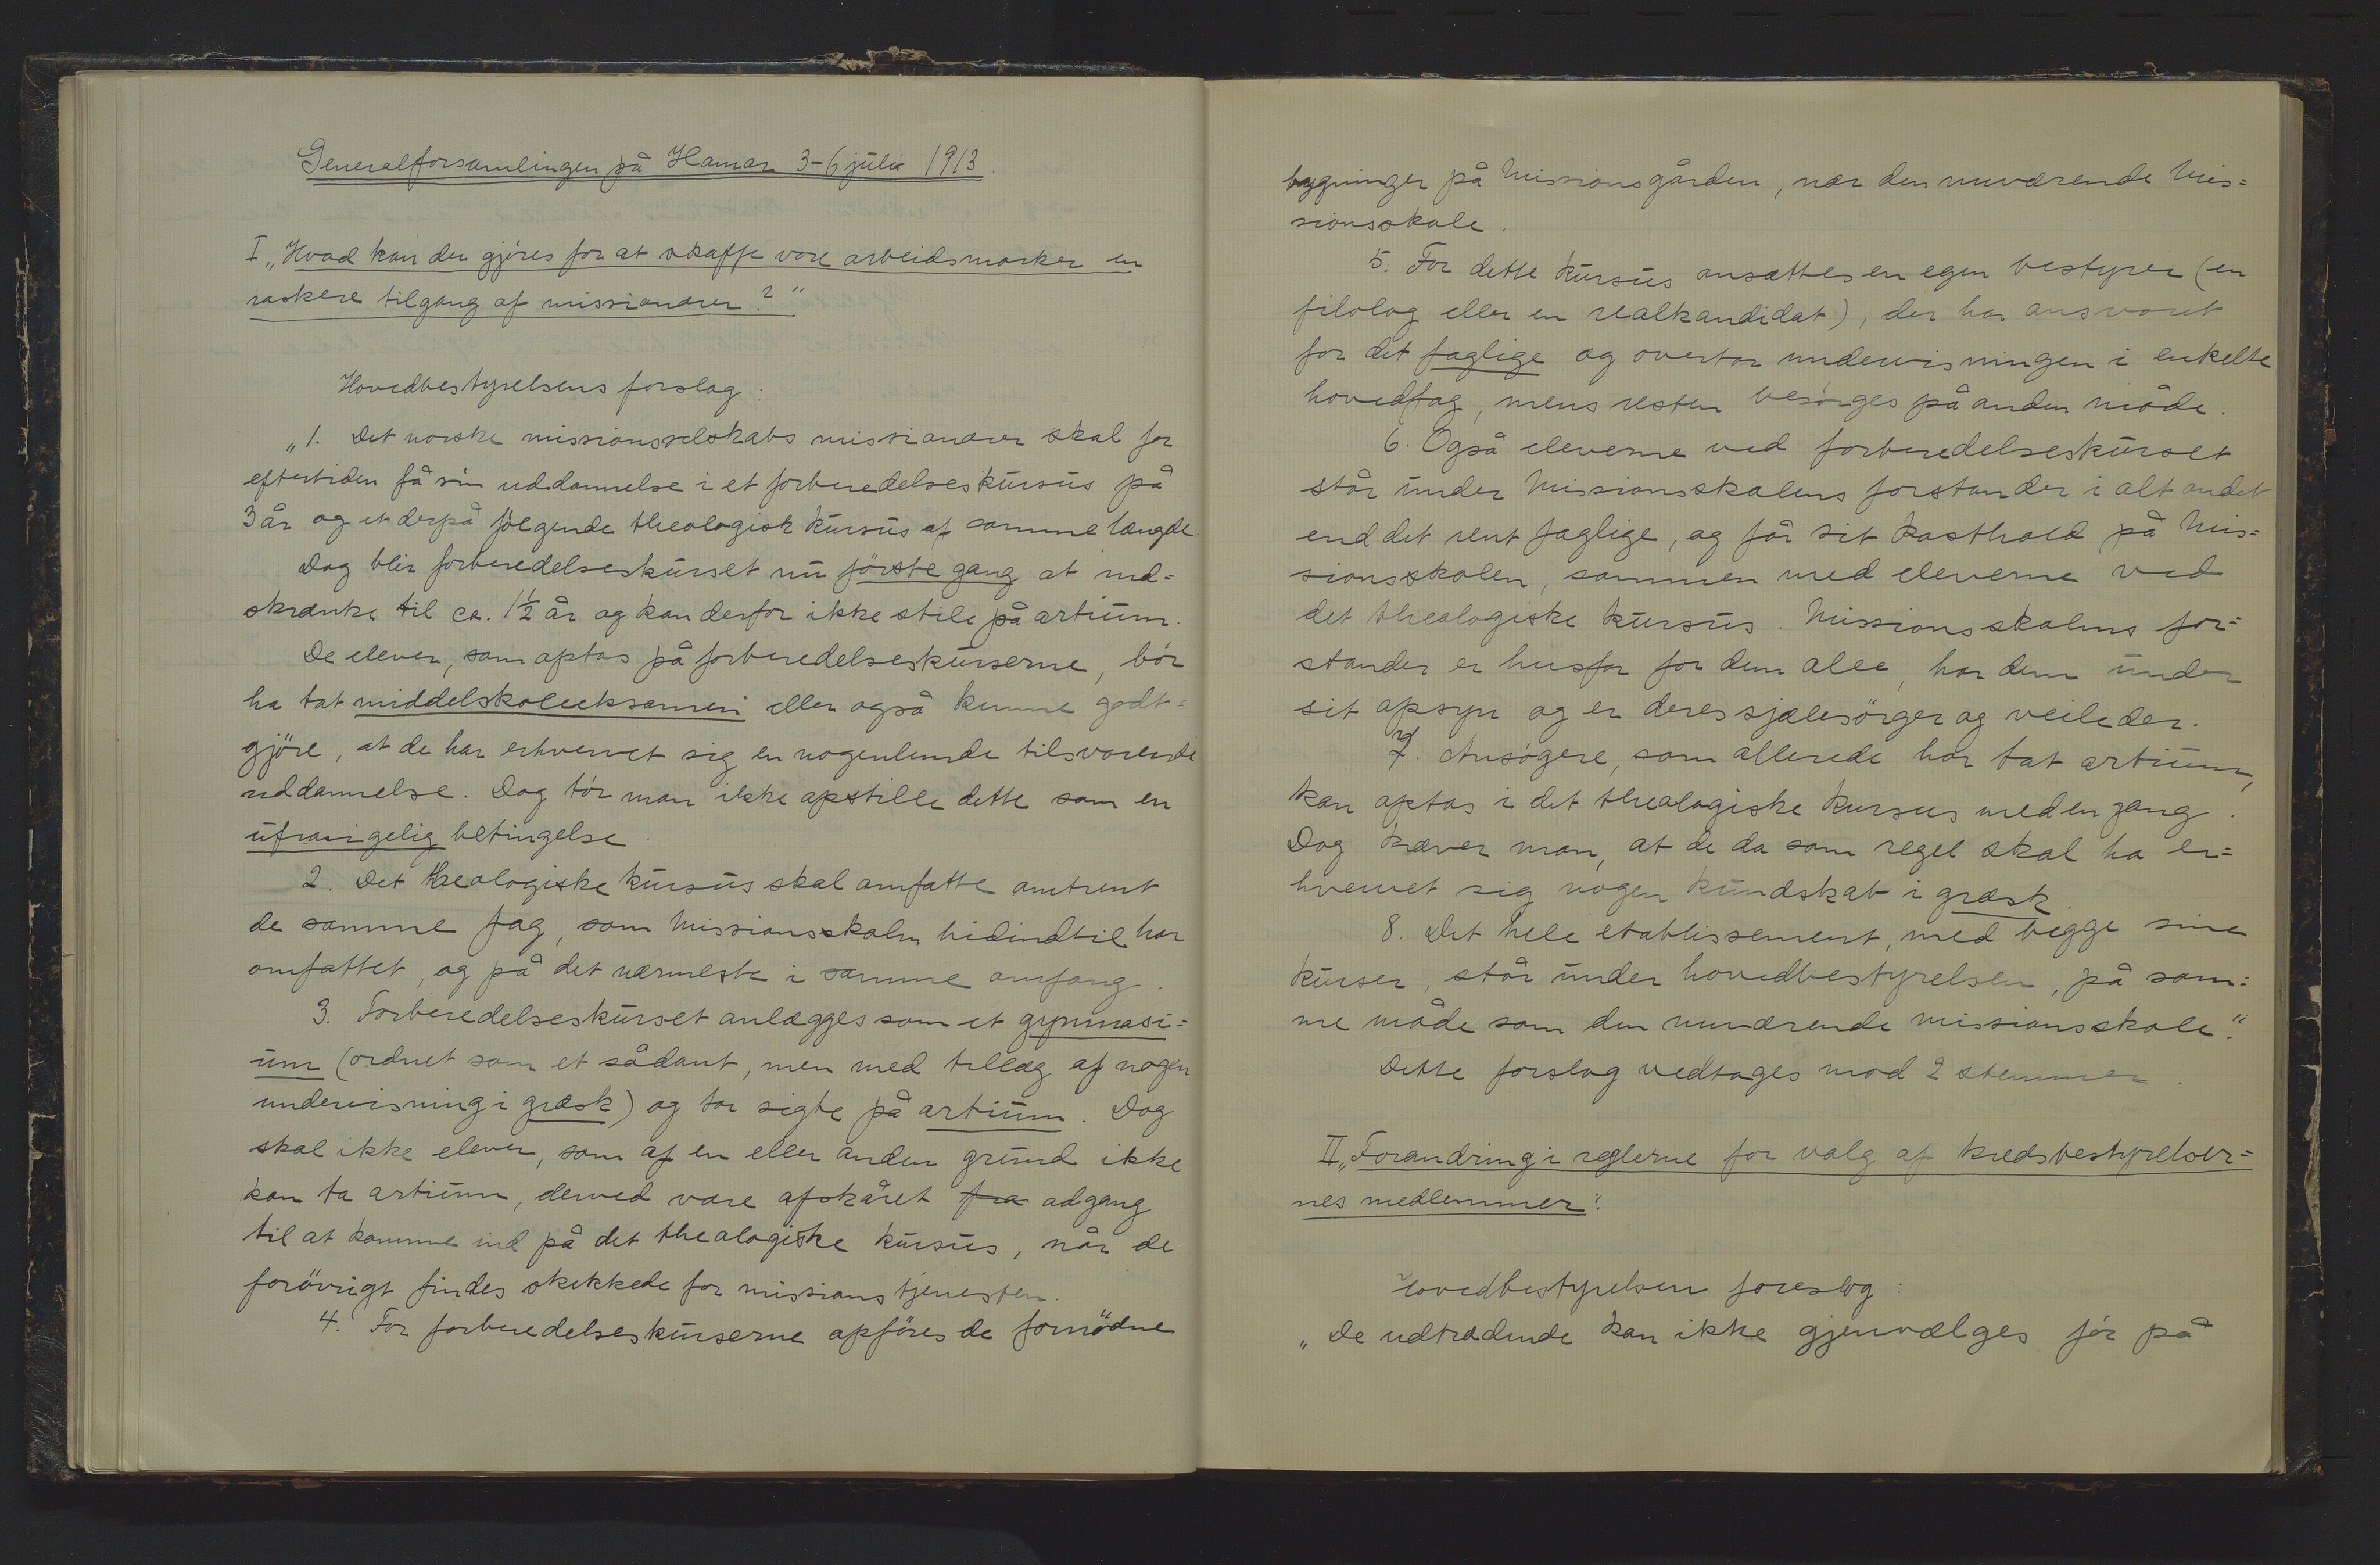 Generalforsamlingen på Hamar 3-6 juli 1913.
I „Hvad kan der gjøres for at skaffe vore arbeidsmarker en
raskere tilgang af missionærer?"
Hovedbestyrelsens forslag:
„1. Det norske missionsselskabs missionærer skal for
eftertiden få sin uddannelse i et forberedelseskursus på
3 år og et derpå følgende theologisk kursus af samme længde
Dog blir forberedelseskurset nu første gang at ind=
skrænke til ca. 1½ år og kan derfor ikke stile på artium.
De elever, som optas på forberedelseskurserne, bör
ha tat middelskoleeksamen eller også kunne godt=
gjöre, at de har erhvervet sig en nogenlunde tilsvarende
uddannelse. Dog tör man ikke opstille dette som en
ufravigelig betingelse.
2. Det theologiske kursus skal omfatte omtrent
de samme fag, som Missionsskolen hidindtil har
omfattet, og på det nærmeste i samme omfang.
3. Forberedelseskurset anlægges som et gymnasi=
um (ordnet som et sådant, men med tillæg af nogen
undervisning i græsk) og tar sigte på artium. Dog
skal ikke elever, som af en eller anden grund ikke
kan ta artium, derved være afskåret fra adgang
til at komme ind på det theologiske kursus, når de
forövrigt findes skikkede for missionstjenesten.
4. For forberedelseskurserne opföres de fornödne
bygninger på Missionsgården, nær den nuværende Mis=
sionsskole.
5. For dette kursus ansættes en egen bestyrer (en
filolog eller en realkandidat), der har ansvaret
for det faglige og overtar undervisningen i enkelte
hovedfag, mens resten besörges på anden måde.
6. Også eleverne ved forberedelseskurset
står under Missionsskolens forstander i alt andet
end det rent faglige, og får sit kosthold på Mis=
sionsskolen, sammen med eleverne ved
det theologiske kursus. Missionsskolens for=
stander er husfar for dem alle, har dem under
sit opsyn og er deres sjælesörger og veileder.
7. Ansögere, som allerede har tat artium,
kan optas i det theologiske kursus med en gang.
Dog kræver man, at de da som regel skal ha er=
hvervet sig nogen kundskab i græsk.
8. Det hele etablissement, med begge sine
kurser, står under hovedbestyrelsen, på sam=
me måde som den nuværende missionsskole."
Dette forslag vedtages mod 2 stemmer.
II „Forandring i reglerne for valg af kredsbestyrelser=
nes medlemmer".
Hovedbestyrelsen foreslog:
„De udtrædende kan ikke gjenvælges för på